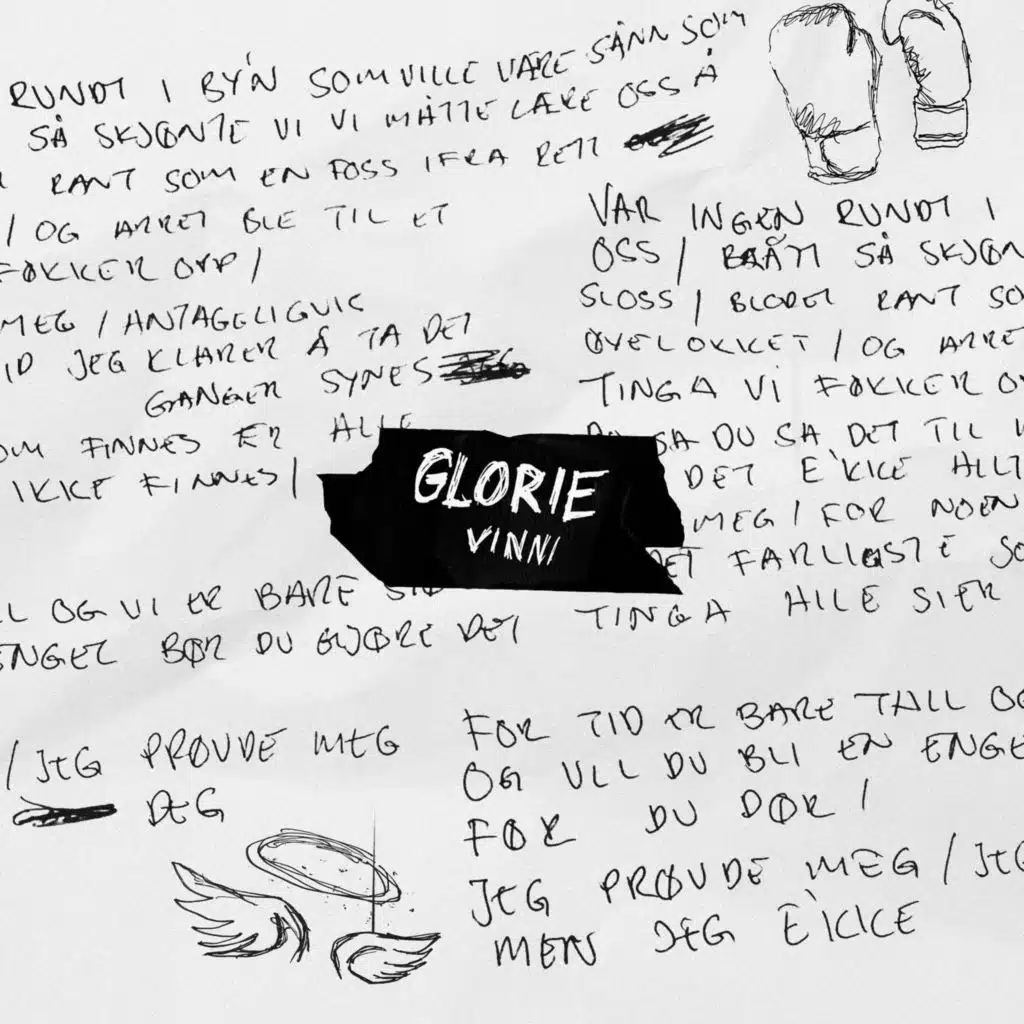 RUNDT I BY'N SOM VILLE VÆRE SÅNN SOM
SÅ SKJØNTE VI VI MÅTTE LÆRE OSS Å
RANT SOM EN FOSS IFRA RETT
/ OG ARRET BLE TIL ET
FØKKER OPP /
MEG / ANTAGELIGVIS
TID JEG KLARER Å TA DET
GANGER SYNES
SOM FINNES ER ALLE
IKKE FINNES /
VAR INGEN RUNDT I
OSS / BRÅTT SÅ SKJØN
SLOSS / BLODET RANT SO
ØYELOKKET / OG ARRE
TINGA VI FØKKER O
SA DU SA DET TIL
DET E'KKE ALLT
MEG / FOR NOEN
DET FARLIGSTE SO
TINGA ALLE SIER
GLORIE
VINNI
LL OG VI ER BARE
ENGEL BØR DU GJØRE DET
/ JEG PRØVDE MEG
DEG
FOR TID ER BARE TALL OG
OG VILL DU BLI EN ENGE
FØR DU DØR /
JEG PRØVDE MEG / JEG
MEN JEG E'KKE